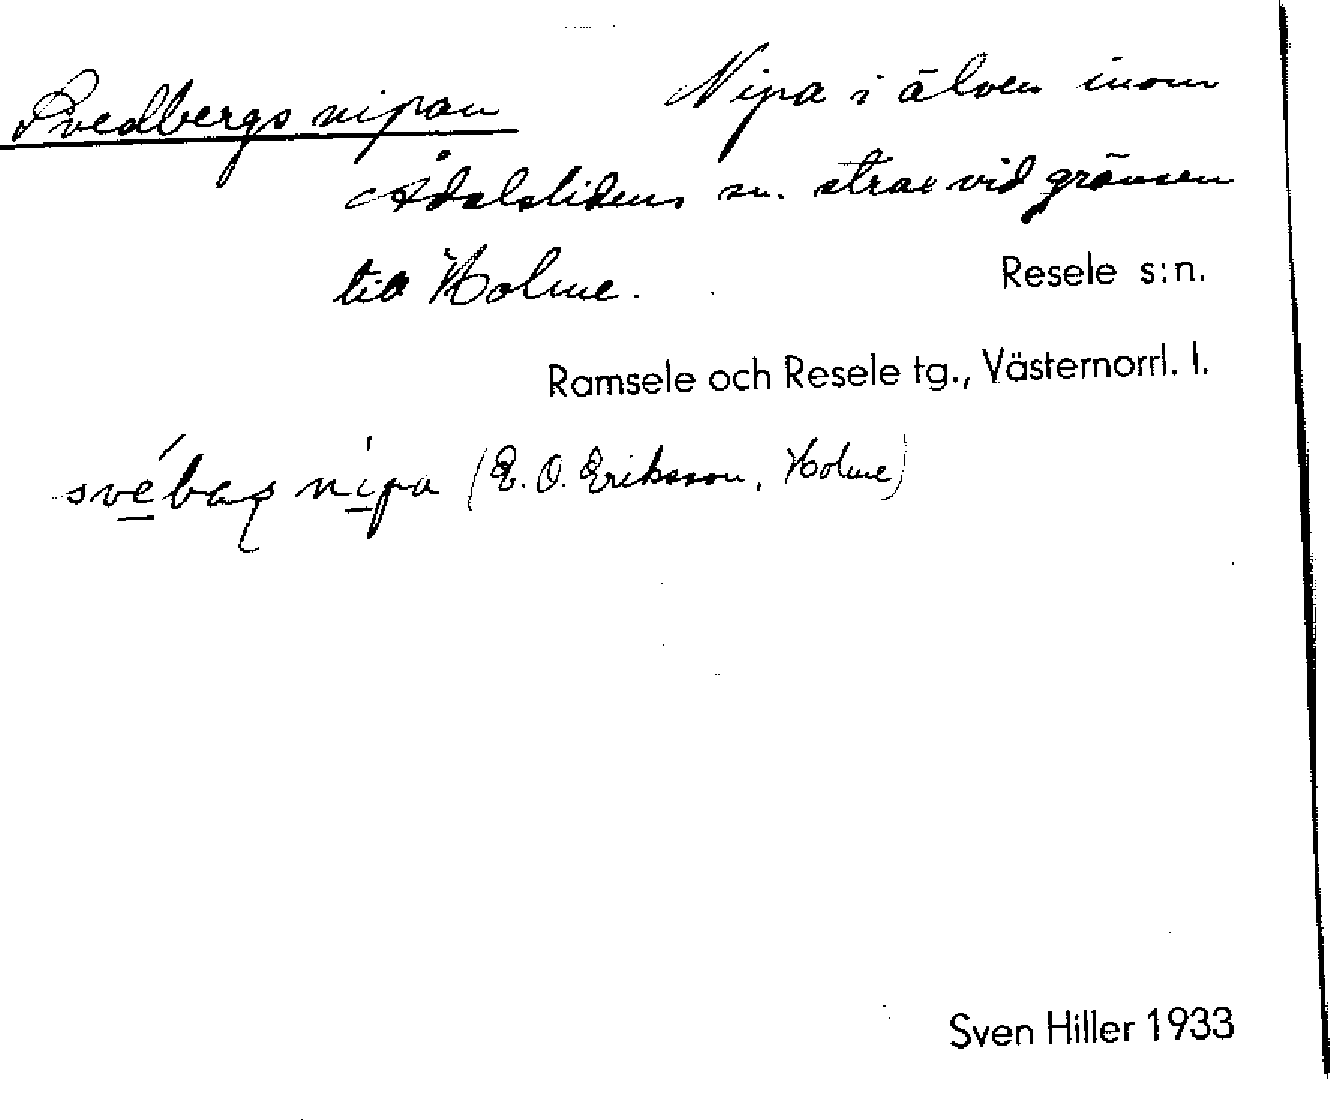 Svedbergsnipan Nipa i älven inom
Ådalslidens sn. strax vid gränsen
till Holme. Resele s:n.
Ramsele och Resele tg., Västernorrl. l.
nípa (E. O. Eriksson, Holme)
Sven Hiller 1933